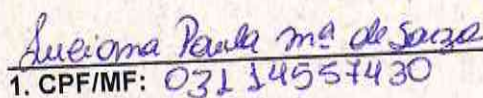 Luciana Paula mª de Souza
1. CPF/MF: 031 14557430